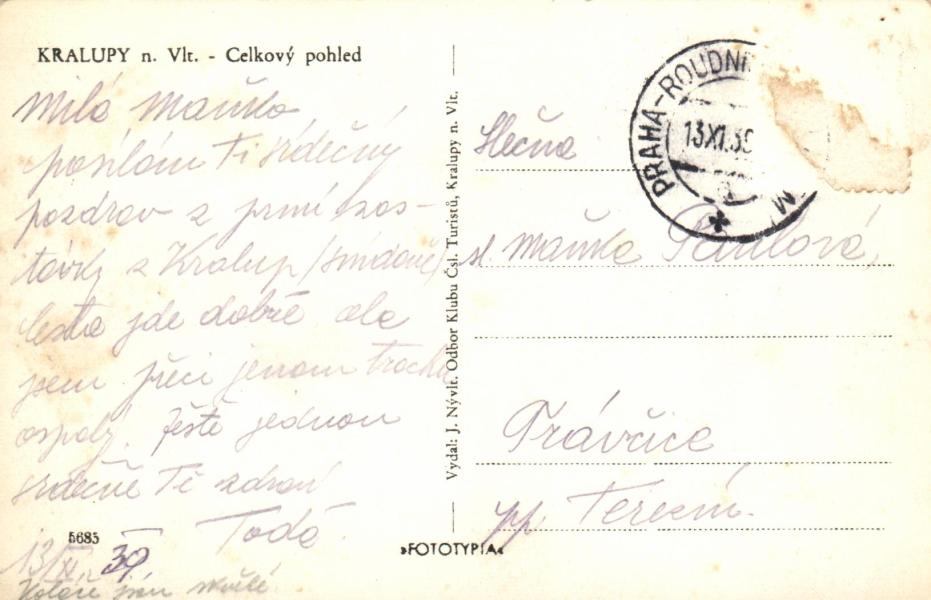 KRALUPY n. Vlt. - Celkový pohled
Milá Mařko
posílám Ti srdečný
pozdrav z první zas-
távky z Kralup (snídaně)
cesta jde dobře ale
jsem přeci jenom trochu
ospalý. Ještě jednou
srdečně Tě zdraví
Toda.
13/XI. 39.
Koláče jsou skvělé
5685
»FOTOTYPIA«
Vydal: J. Nývlt. Odbor Klubu Čsl. Turistů, Kralupy n. Vlt.
PRAHA-ROUDNI
13.XI.39
Slečna
sl. Mařka
Trávčice
pp Terezín.